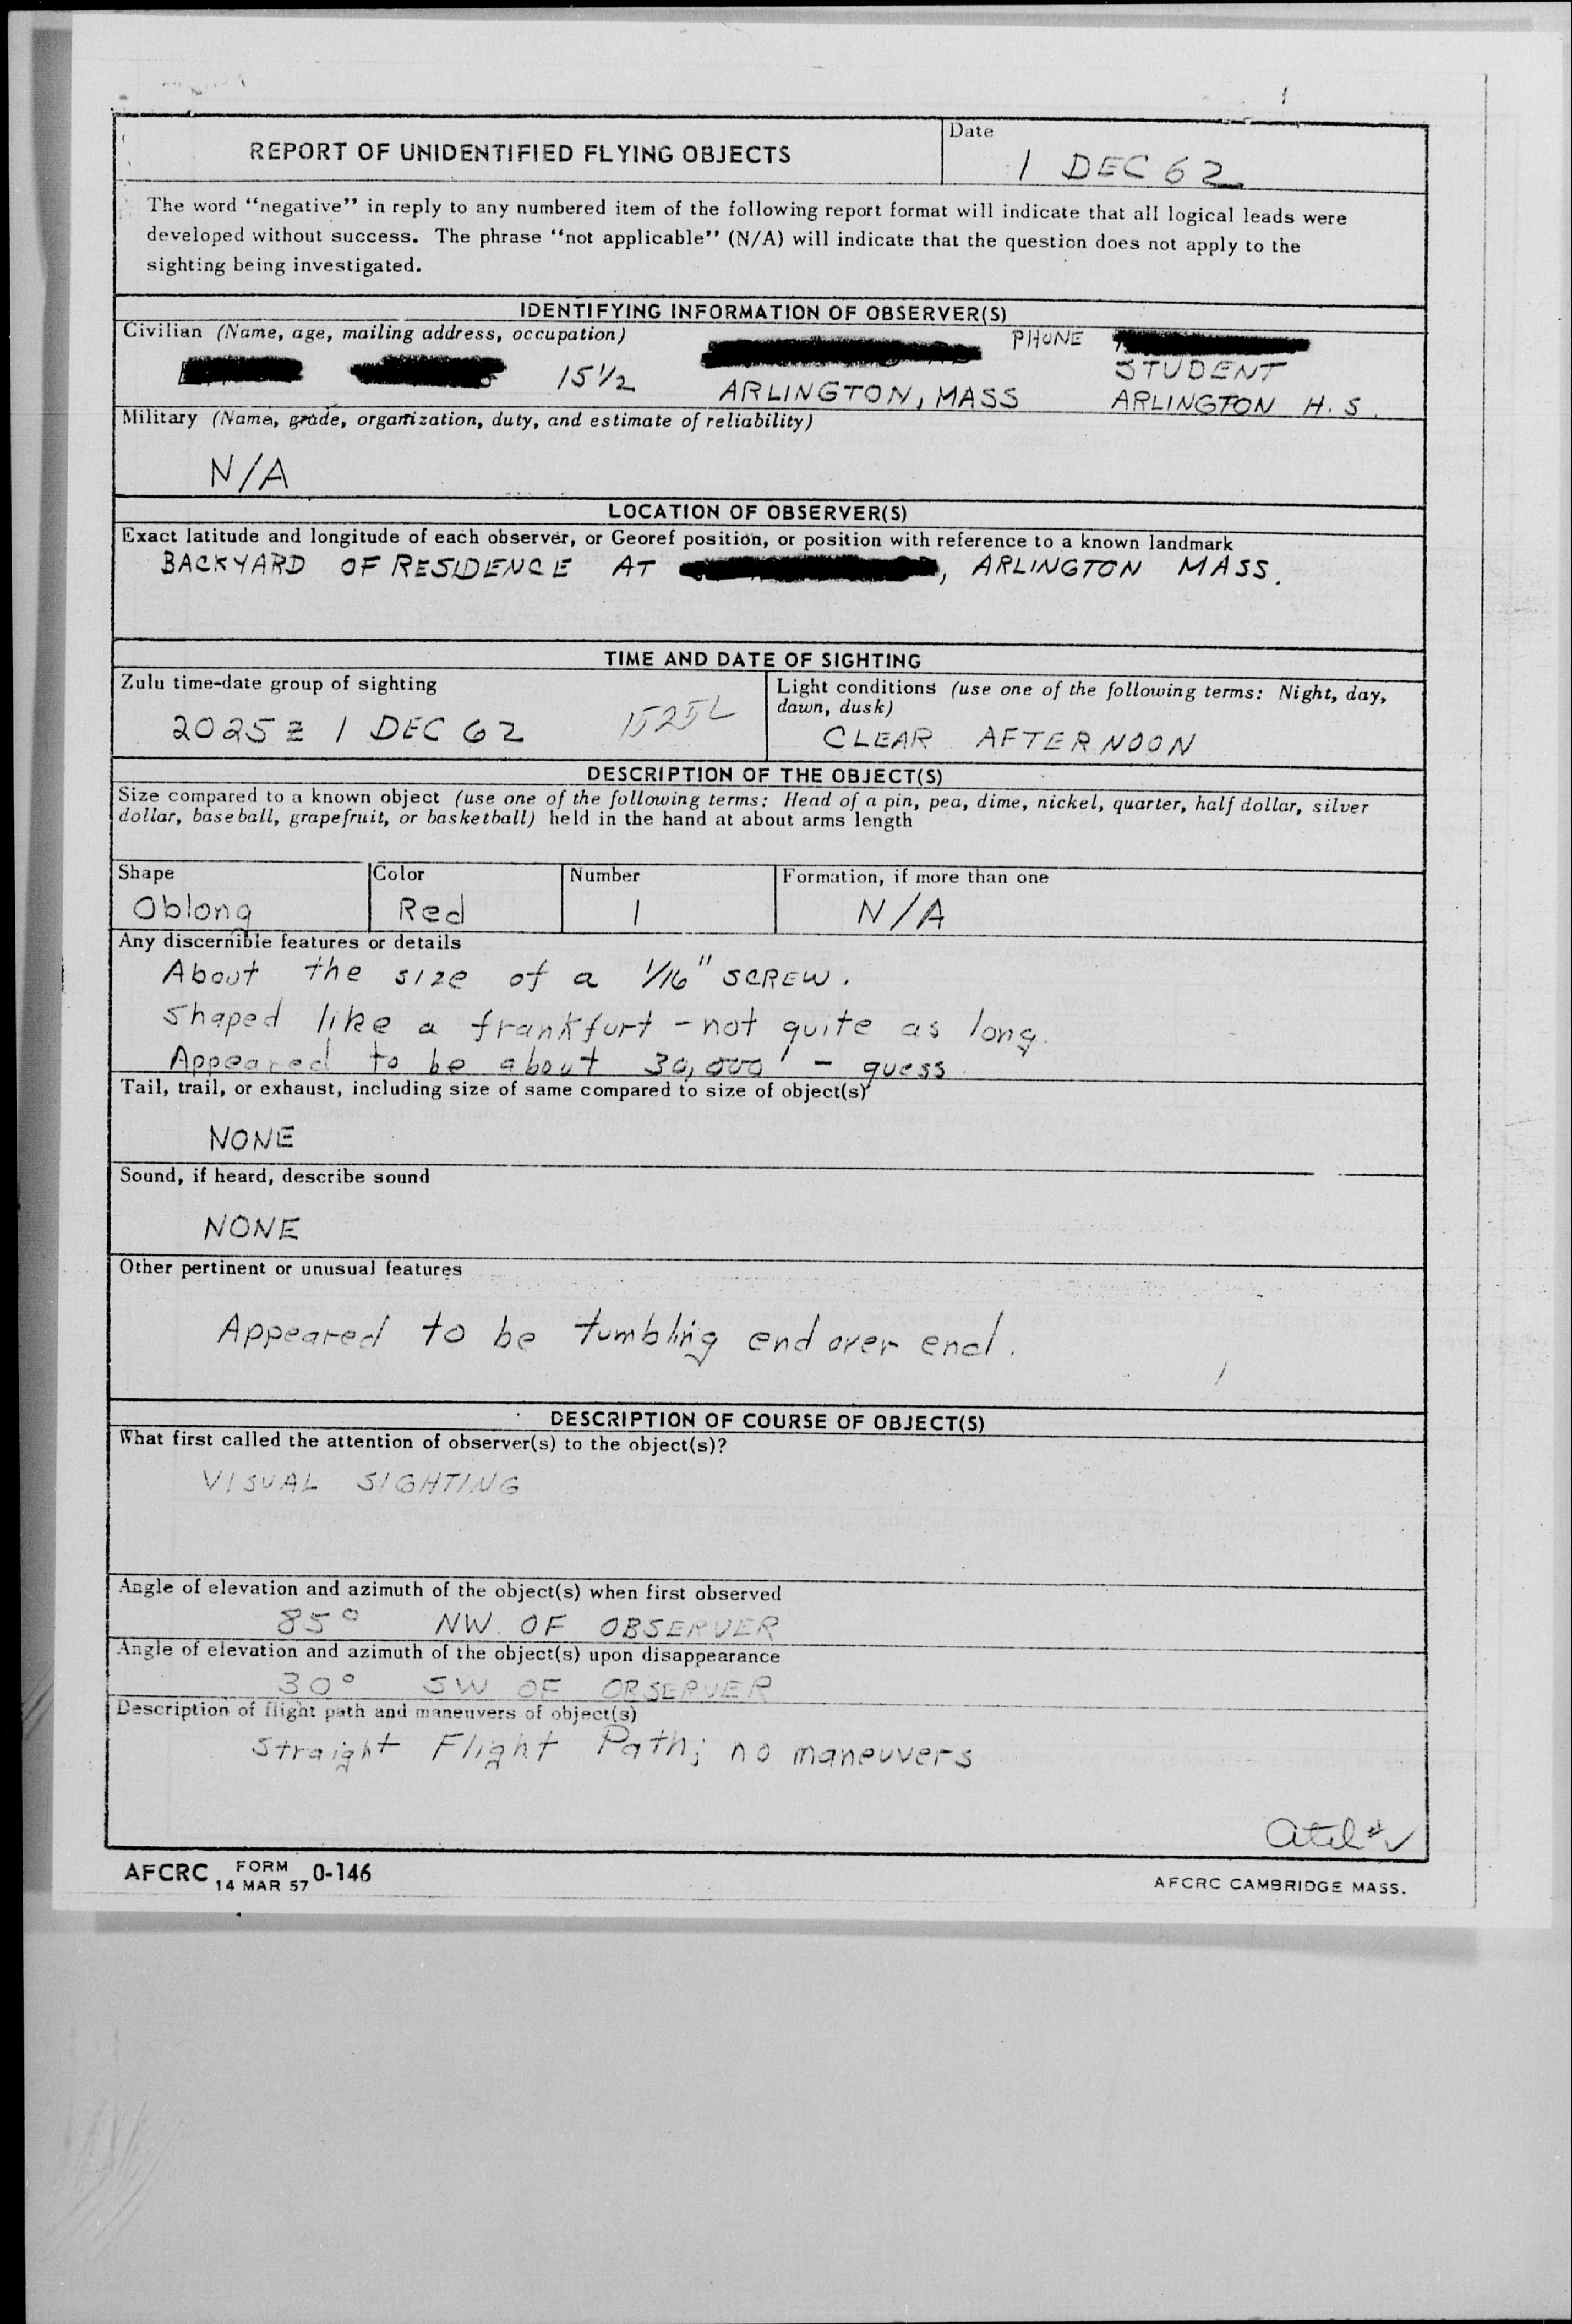 REPORT OF UNIDENTIFIED FLYING OBJECTS
Date
1 DEC 62
The word “negative” in reply to any numbered item of the following report format will indicate that all logical leads were
developed without success. The phrase “not applicable” (N/A) will indicate that the question does not apply to the
sighting being investigated.
IDENTIFYING INFORMATION OF OBSERVER(S)
Civilian (Name, age, mailing address, occupation)
PHONE
15 1/2
STUDENT
ARLINGTON, MASS
ARLINGTON H.S.
Military (Name, grade, organization, duty, and estimate of reliability)
N/A
LOCATION OF OBSERVER(S)
Exact latitude and longitude of each observer, or Georef position, or position with reference to a known landmark
BACKYARD OF RESIDENCE AT , ARLINGTON MASS.
TIME AND DATE OF SIGHTING
Zulu time-date group of sighting
2025 Z 1 DEC 62 1525L
Light conditions (use one of the following terms: Night, day,
dawn, dusk)
CLEAR AFTERNOON
DESCRIPTION OF THE OBJECT(S)
Size compared to a known object (use one of the following terms: Head of a pin, pea, dime, nickel, quarter, half dollar, silver
dollar, baseball, grapefruit, or basketball) held in the hand at about arms length
Shape
Oblong
Color
Red
Number
1
Formation, if more than one
N/A
Any discernible features or details
About the size of a 1/16" SCREW.
Shaped like a frankfurt - not quite as long.
Appeared to be about 30,000' - guess.
Tail, trail, or exhaust, including size of same compared to size of object(s)
NONE
Sound, if heard, describe sound
NONE
Other pertinent or unusual features
Appeared to be tumbling end over end.
DESCRIPTION OF COURSE OF OBJECT(S)
What first called the attention of observer(s) to the object(s)?
VISUAL SIGHTING
Angle of elevation and azimuth of the object(s) when first observed
85° NW. OF OBSERVER
Angle of elevation and azimuth of the object(s) upon disappearance
30° SW OF OBSERVER
Description of flight path and maneuvers of object(s)
Straight Flight Path; no maneuvers
AFCRC FORM 0-146
14 MAR 57
AFCRC CAMBRIDGE MASS.